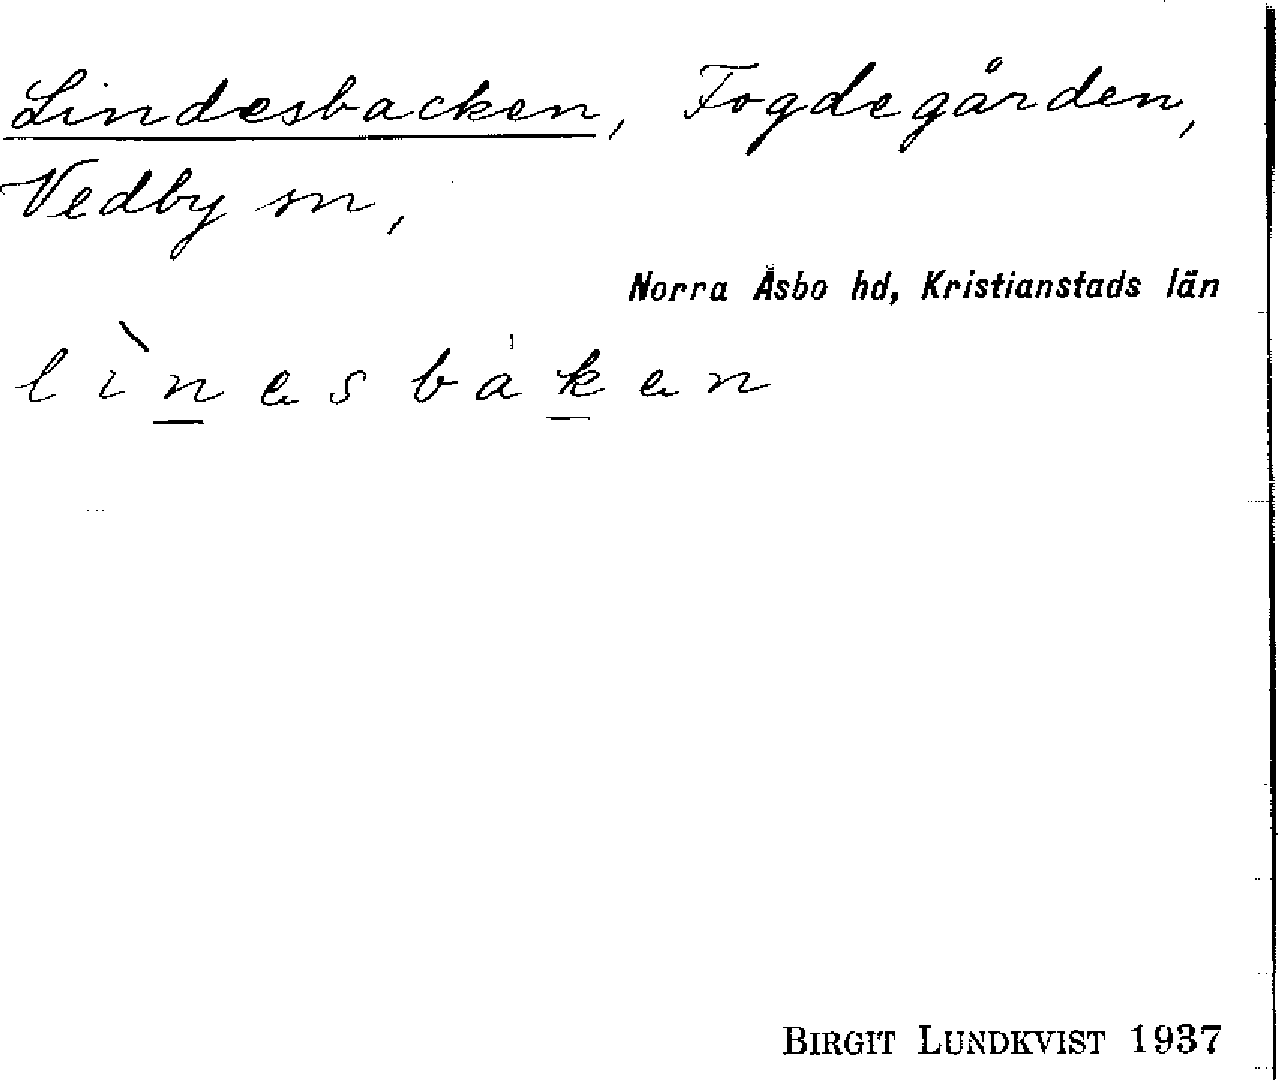 Lindesbacken, Fogdegården,
Vedby sn,
Norra Åsbo hd, Kristianstads län
lìnesbáken
BIRGIT LUNDKVIST 1937